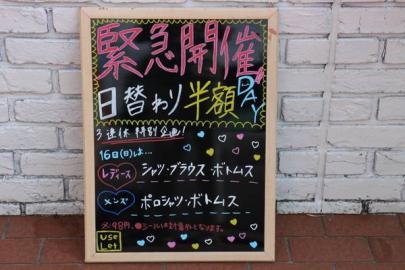 緊急開催!!
日替わり半額DAY
3連休特別企画!
16日(日)は...
レディース シャツ・ブラウス ボトムス
メンズ ポロシャツ・ボトムス
※98円、●シールは対象外となります。
USE LET